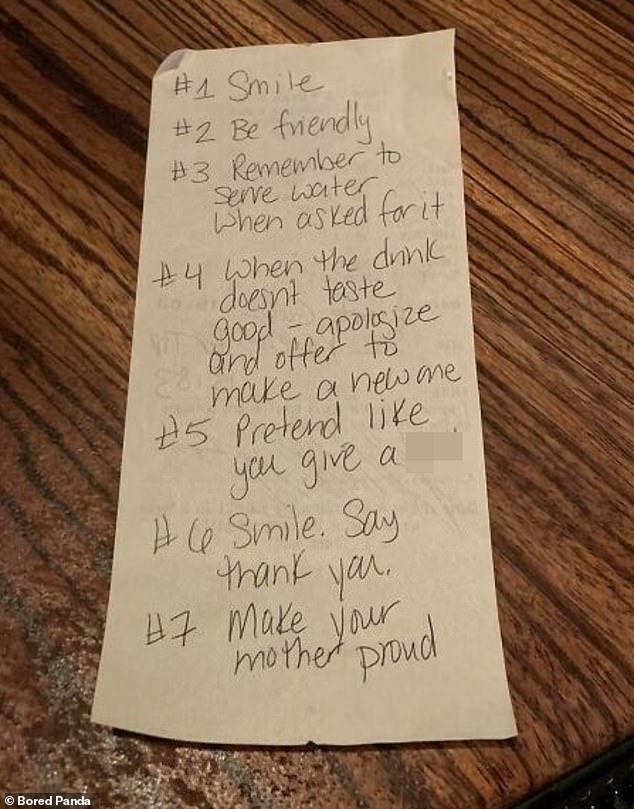 #1 Smile
#2 Be friendly
#3 Remember to
serve water
when asked for it
#4 When the drink
doesnt taste
good - apologize
and offer to
make a new one
#5 Pretend like
you give a
#6 Smile. Say
thank you.
#7 Make your
mother proud
© Bored Panda